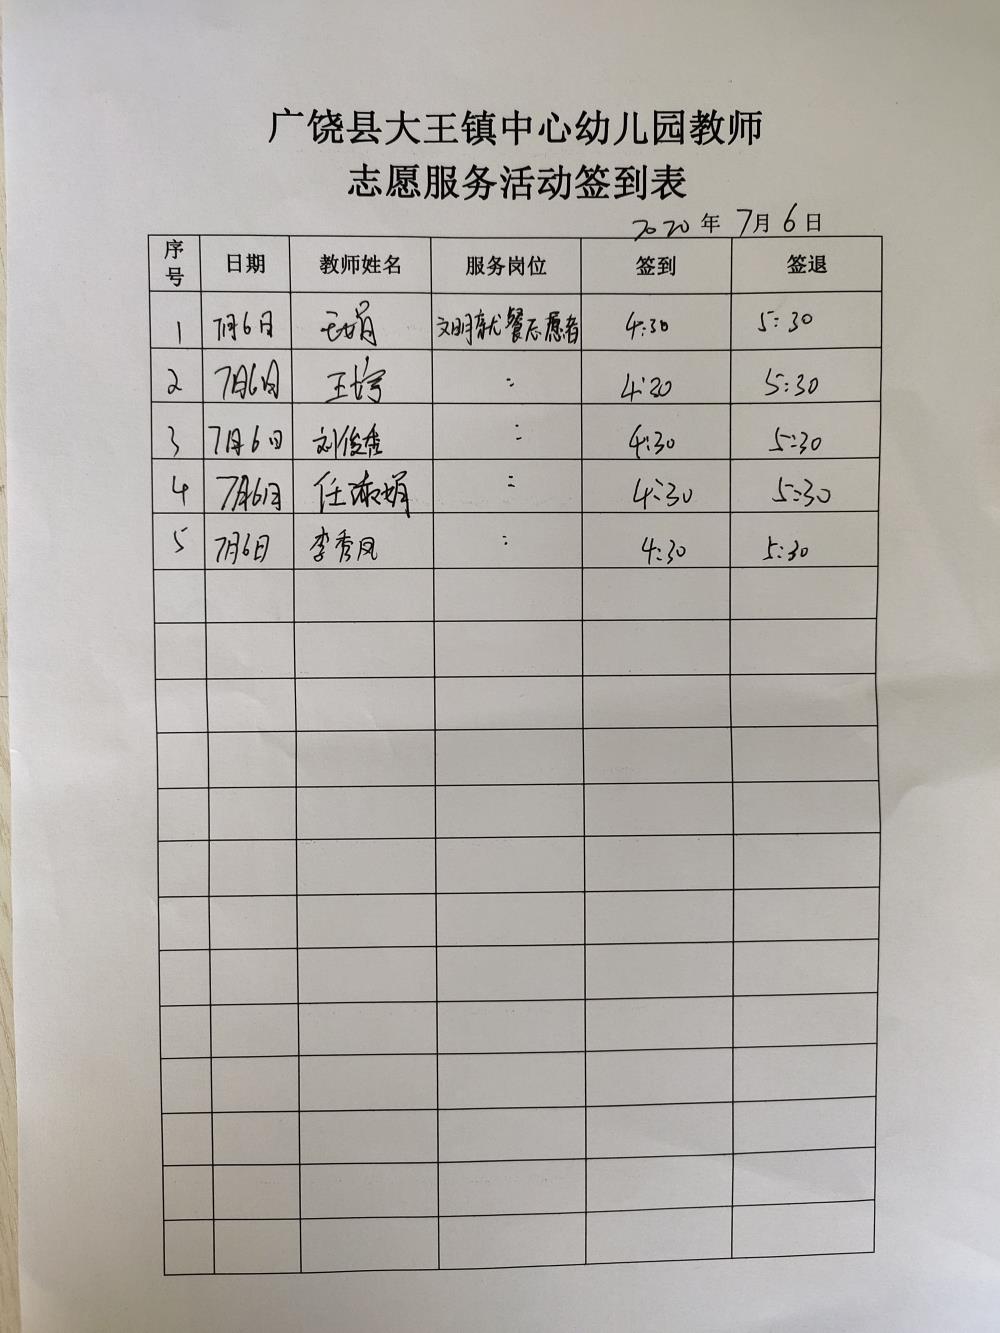 广饶县大王镇中心幼儿园教师
志愿服务活动签到表
2020年7月6日
序号 日期 教师姓名 服务岗位 签到 签退
1 7月6日 王娟 文明就餐志愿者 4:30 5:30
2 7月6日 王 : 4:30 5:30
3 7月6日 刘俊香 : 4:30 5:30
4 7月6日 任淑娟 : 4:30 5:30
5 7月6日 李秀凤 : 4:30 5:30